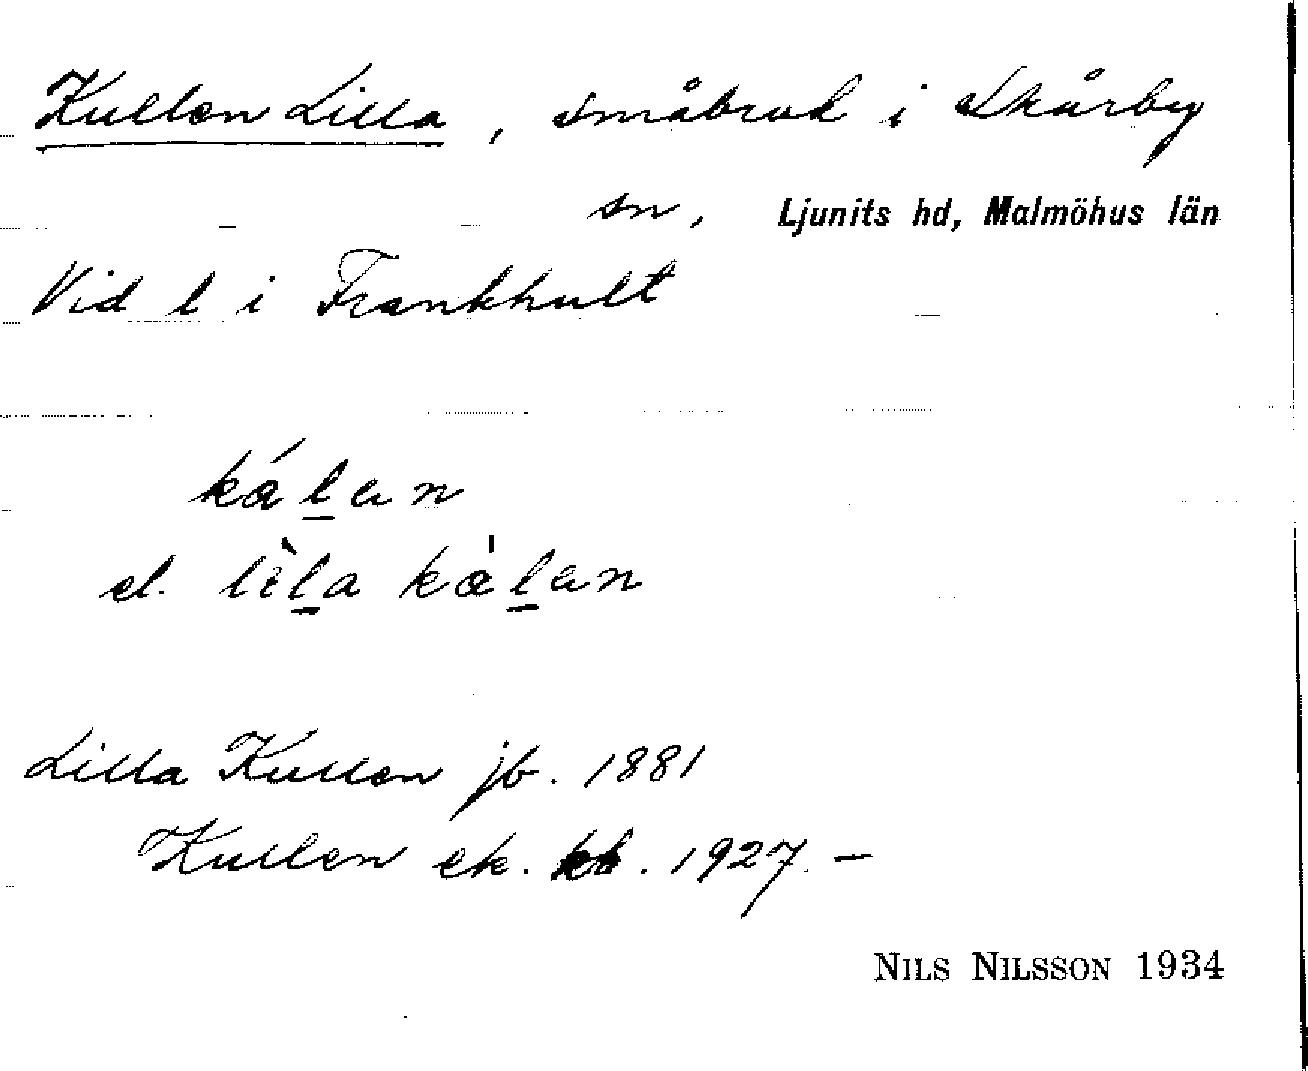 Kullen Lilla, småbruk i Skårby
sn, Ljunits hd, Malmöhus län
Vid l i Frankhult
kálan
el. lìla kàlan
Lilla Kullen jb. 1881
Kullen ek. kb. 1927. —
NILS NILSSON 1934